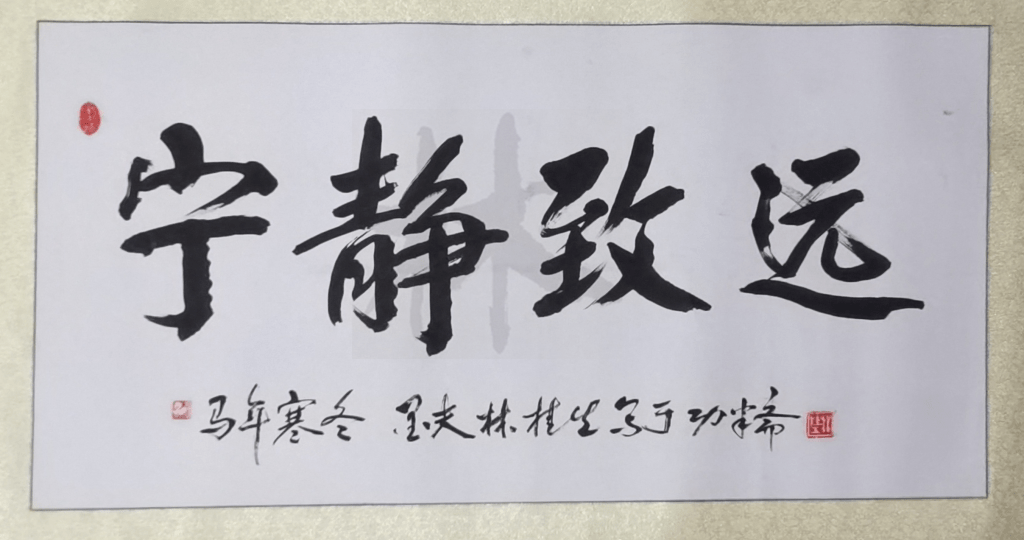 宁静致远
马年寒冬 墨夫林桂生写于功半斋